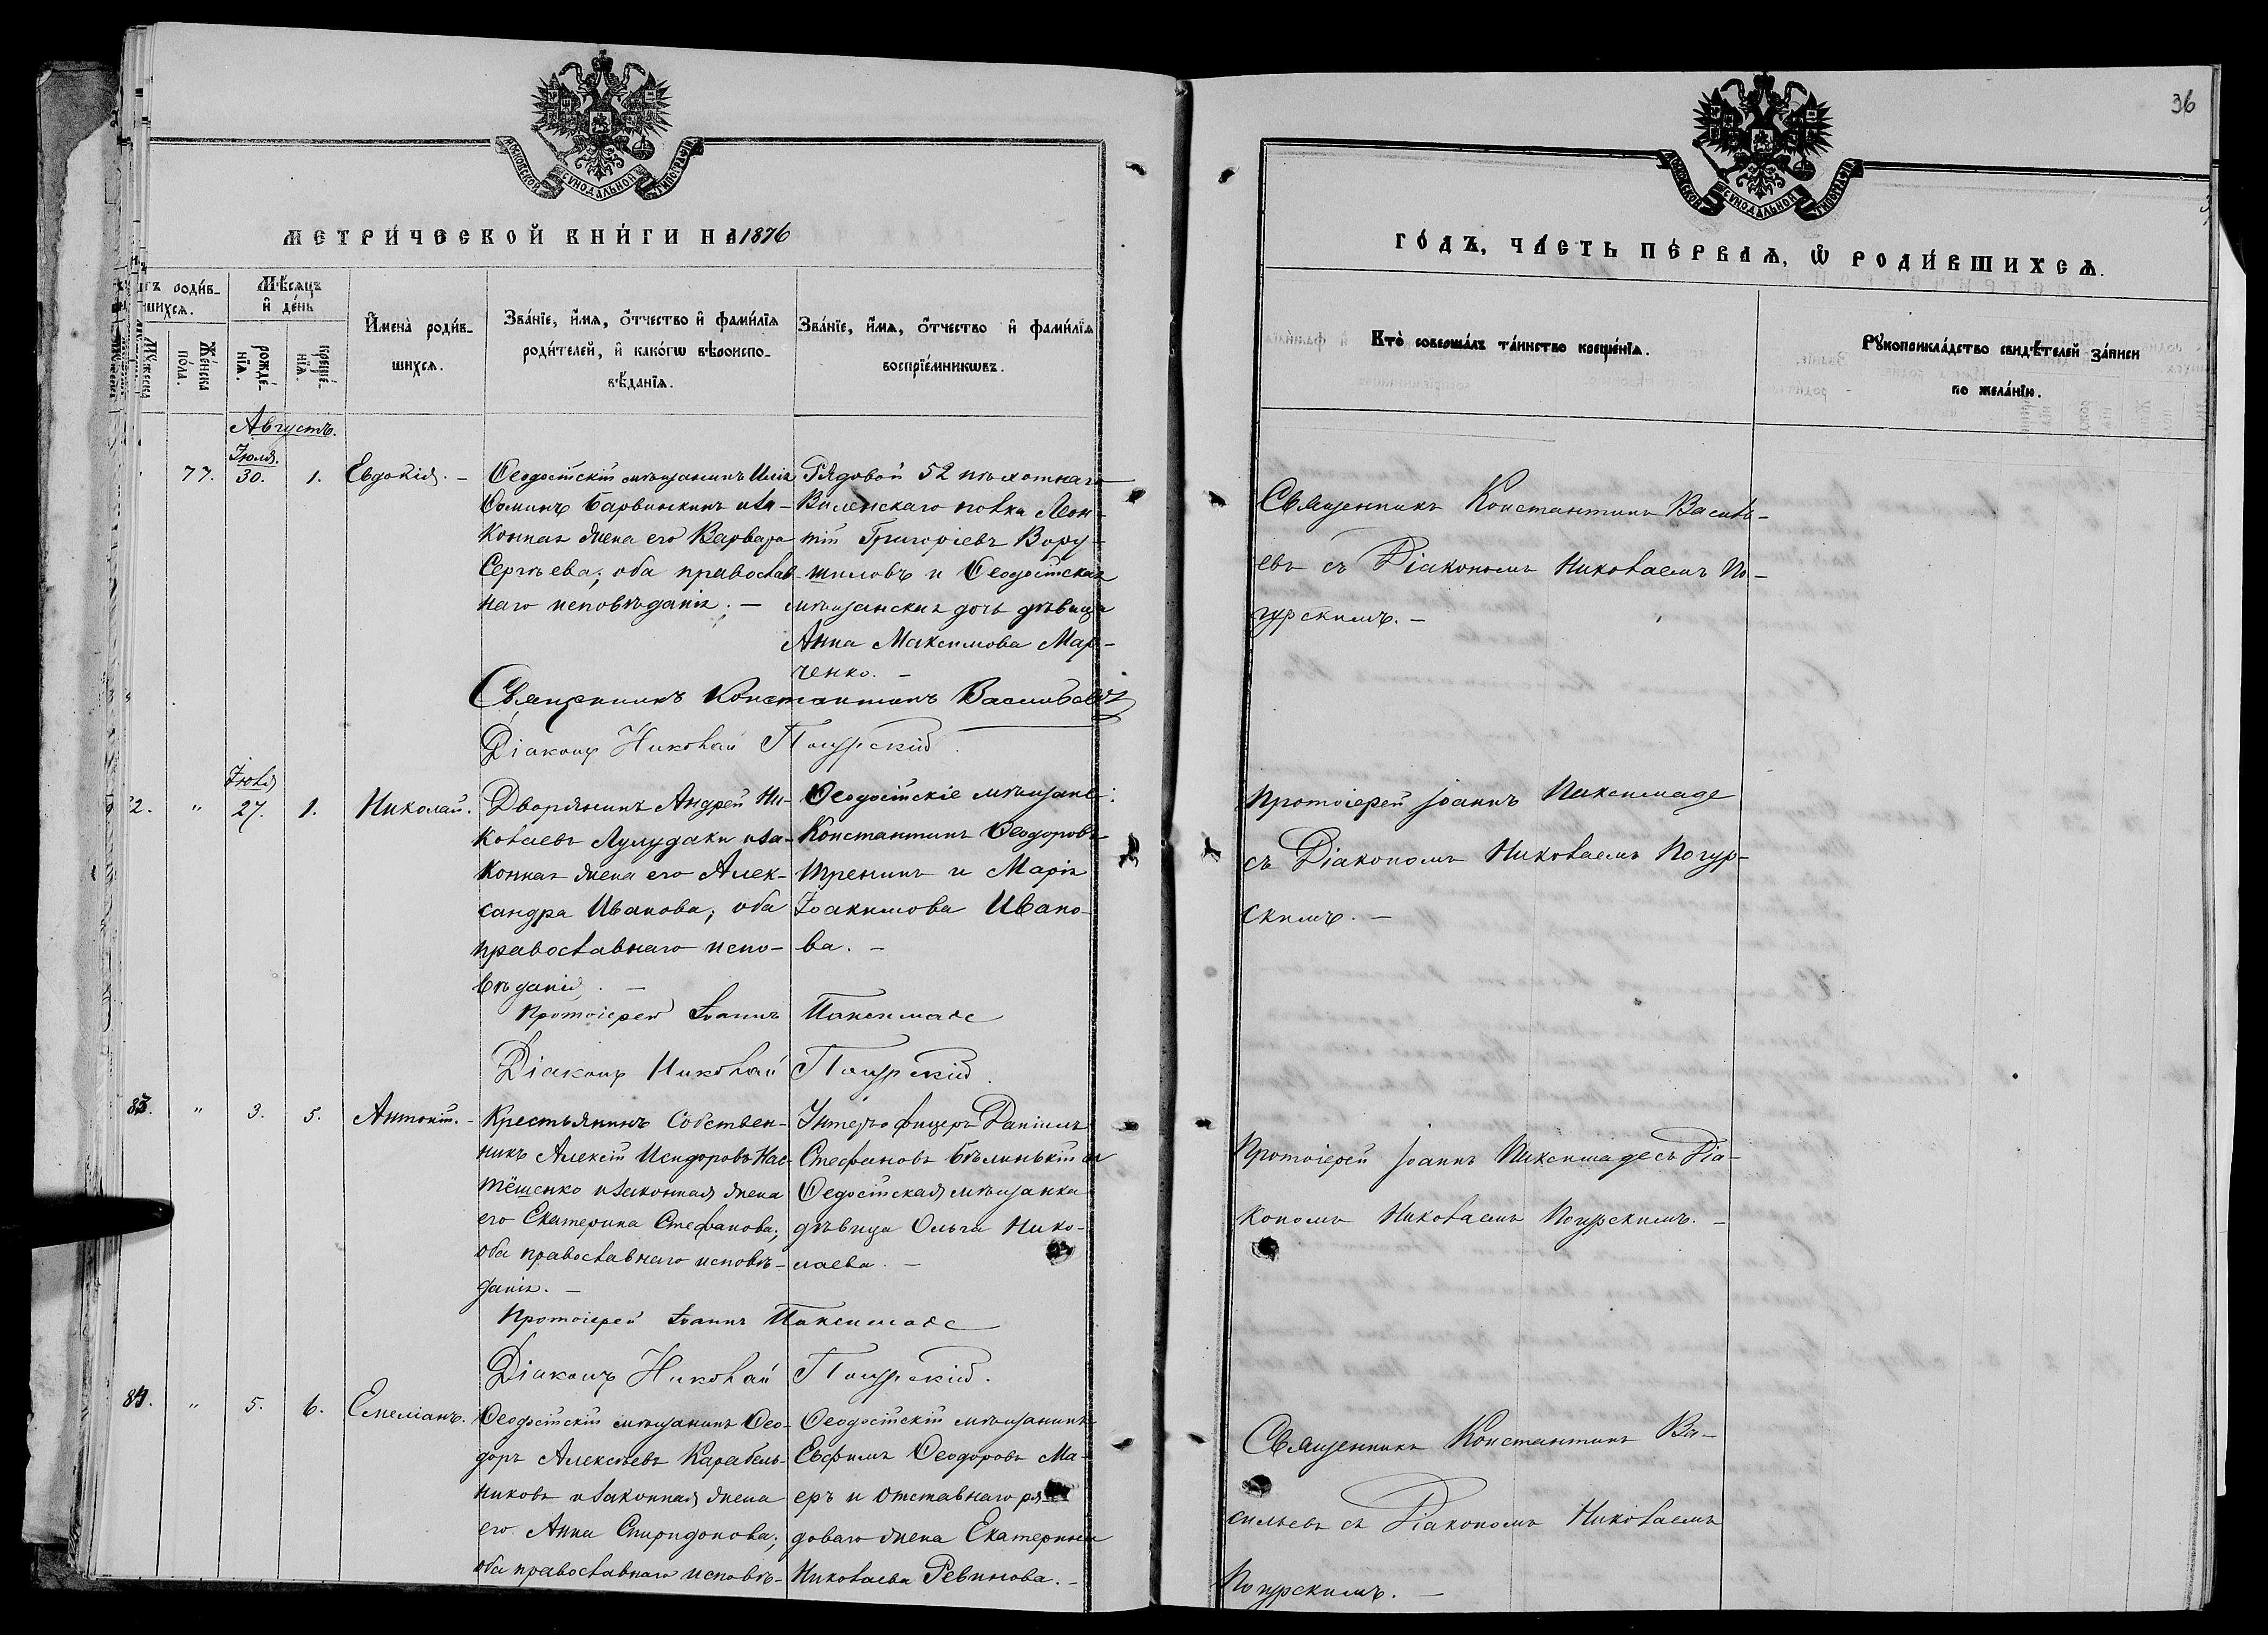 МОСКОВСКОЙ СУНОДАЛЬНОЙ ТИПОГРАФІИ
МЕТРИ́ЧЕСКОЙ КНИ́ГИ НА 1876
Мѣ́сяцъ и҆ де́нь
И҆мена̀ роди́в-
шихся.
Зва́нїе, и҆́мѧ, ѻ҆́тчество и҆ фами́лїѧ
роди́телей, и҆ како́гѡ вѣроиспо-
вѣ́данїѧ.
Зва́нїе, и҆́мѧ, ѻ҆́тчество и҆ фами́лїѧ
воспрїе́мникѡвъ.
Же́нска по́ла.
рожде́-нїѧ.
креще́-нїѧ.
Августъ.
Іюля.
77. 30. 1. Евдокія. –
Ѳеодосійскій мѣщанинъ Илія
Ѳоминъ Барвинкинъ и за-
конная жена его Варвара
Сергѣева; оба православ-
наго исповѣданія. –
Рядовой 52 пѣхотнаго
Виленскаго полка Леон-
тій Григоріевъ Вору-
шиловъ и Ѳеодосійская
мѣщанская дочь дѣвица
Анна Максимова Мар-
ченко. –
Священникъ Константинъ Васильевъ
Діаконъ Николай Погурскій.
Іюля
82. " 27. 1. Николай.
Дворянинъ Андрей Ни-
колаевъ Лулудаки и за-
конная жена его Алек-
сандра Иванова; оба
православнаго испо-
вѣданія. –
Ѳеодосійскіе мѣщане:
Константинъ Ѳеодоровъ
Тренинъ и Марія
Іоакимова Ивано-
ва. –
Протоіерей Іоаннъ Паксимаде
Діаконъ Николай Погурскій.
83. " 3. 5. Антоній. –
Крестьянинъ Собствен-
никъ Алексій Исидоровъ Нас-
тёщенко и законная жена
его Екатерина Стефанова;
оба православнаго исповѣ-
данія. –
Унтеръ офицеръ Даніилъ
Стефановъ Бѣлинькій и
Ѳедосійская мѣщанка
дѣвица Ольга Нико-
лаева. –
Протоіерей Іоаннъ Паксимаде
Діаконъ Николай Погурскій.
84. " 5. 6. Емеліанъ.
Ѳеодосійскій мѣщанинъ Ѳео-
доръ Алексѣевъ Карабель-
никовъ и законная жена
его Анна Спиридонова;
оба православнаго исповѣ-
Ѳеодосійскій мѣщанинъ
Евфимъ Ѳеодоровъ Ма-
еръ и отставнаго ря-
доваго жена Екатерина
Николаева Ревинова. –
36
МОСКОВСКОЙ СУНОДАЛЬНОЙ ТИПОГРАФІИ
ГО́ДЪ, ЧА́СТЬ ПЕ́РВАѦ, Ѡ҆ РОДИ́ВШИХСѦ.
Кто̀ соверша́лъ та́инство креще́нїѧ.
Рꙋкоприкла́дство свидѣ́телей за́писи
по жела́нїю.
Священникъ Константинъ Василь-
евъ съ Діакономъ Николаемъ По-
гурскимъ. –
Протоіерей Іоаннъ Паксимаде
съ Діакономъ Николаемъ Погур-
скимъ. –
Протоіерей Іоаннъ Паксимаде съ Діа-
кономъ Николаемъ Погурскимъ. –
Священникъ Константинъ Ва-
сильевъ съ Діакономъ Николаемъ
Погурскимъ. –